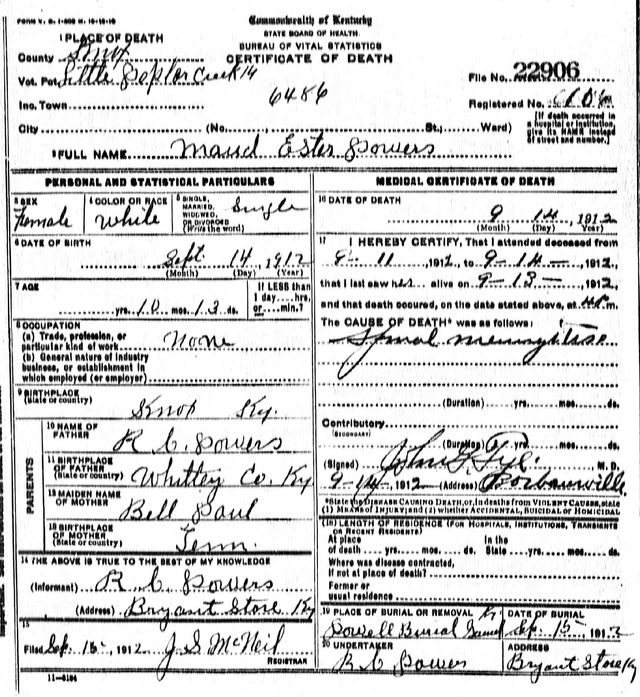 FORM V. S. 1-50M M. 10-10-10
Commonwealth of Kentucky
STATE BOARD OF HEALTH.
BUREAU OF VITAL STATISTICS
CERTIFICATE OF DEATH
1 PLACE OF DEATH
County Knox
Vot. Pct Little Poplar Creek 14
Inc. Town
6486
File No. 22906
Registered No.
City (No. , St., Ward)
[If death occurred in a hospital or institution, give its NAME instead of street and number.]
2 FULL NAME Maud Ester Powers
PERSONAL AND STATISTICAL PARTICULARS
3 SEX Female
4 COLOR OR RACE White
5 SINGLE, MARRIED, WIDOWED OR DIVORCED (Write the word) Single
6 DATE OF BIRTH
Sept. 14, 1912
(Month) (Day) (Year)
7 AGE
yrs. 10 mos. 13 ds.
If LESS than 1 day....hrs. or....min.?
8 OCCUPATION
(a) Trade, profession, or particular kind of work None
(b) General nature of industry business, or establishment in which employed (or employer)
9 BIRTHPLACE
(State or country) Knox Ky.
PARENTS
10 NAME OF FATHER R. C. Powers
11 BIRTHPLACE OF FATHER (State or country) Whitley Co. Ky
12 MAIDEN NAME OF MOTHER Bell Paul
13 BIRTHPLACE OF MOTHER (State or country) Tenn.
14 THE ABOVE IS TRUE TO THE BEST OF MY KNOWLEDGE
(Informant) R. C. Powers
(Address) Bryant Store Ky
15
Filed Sep. 15, 1912 J. S. McNeil
REGISTRAR
11-6184
MEDICAL CERTIFICATE OF DEATH
16 DATE OF DEATH
9 14, 1912
(Month) (Day) (Year)
17 I HEREBY CERTIFY, That I attended deceased from
9-11, 1912, to 9-14-, 1912,
that I last saw her alive on 9-13-, 1912,
and that death occured, on the date stated above, at m.
The CAUSE OF DEATH* was as follows:
Spinal meningitise
(Duration) yrs. mos. ds.
Contributory
(SECONDARY)
(Duration) yrs. mos. ds.
(Signed) John G. Tye M. D.
9-14, 1912 (Address) Barbourville
*State the DISEASE CAUSING DEATH, or, in deaths from VIOLENT CAUSES, state (1) MEANS of INJURY; and (2) whether ACCIDENTAL, SUICIDAL or HOMICIDAL
(18) LENGTH OF RESIDENCE (FOR HOSPITALS, INSTITUTIONS, TRANSIENTS OR RECENT RESIDENTS)
At place of death yrs. mos. ds. In the State yrs. mos. ds.
Where was disease contracted, if not at place of death?
Former or usual residence
19 PLACE OF BURIAL OR REMOVAL
Powell Burial
DATE OF BURIAL
Sep. 15, 1912
20 UNDERTAKER
R C Powers
ADDRESS
Bryant Store Ky